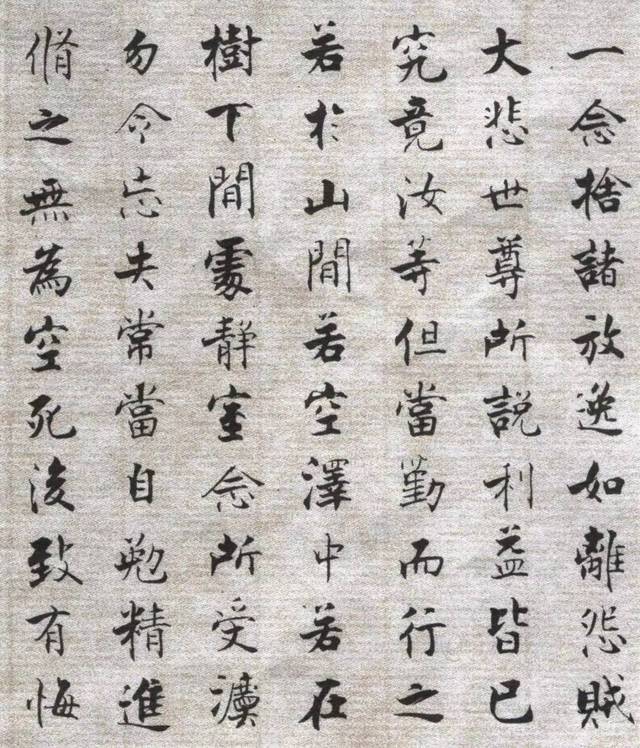 一念捨諸放逸如離怨賊
大悲世尊所説利益皆已
究竟汝等但當勤而行之
若於山間若空澤中若在
樹下間處静室念所受灋
勿令忘失常當自勉精進
脩之無為空死後致有悔